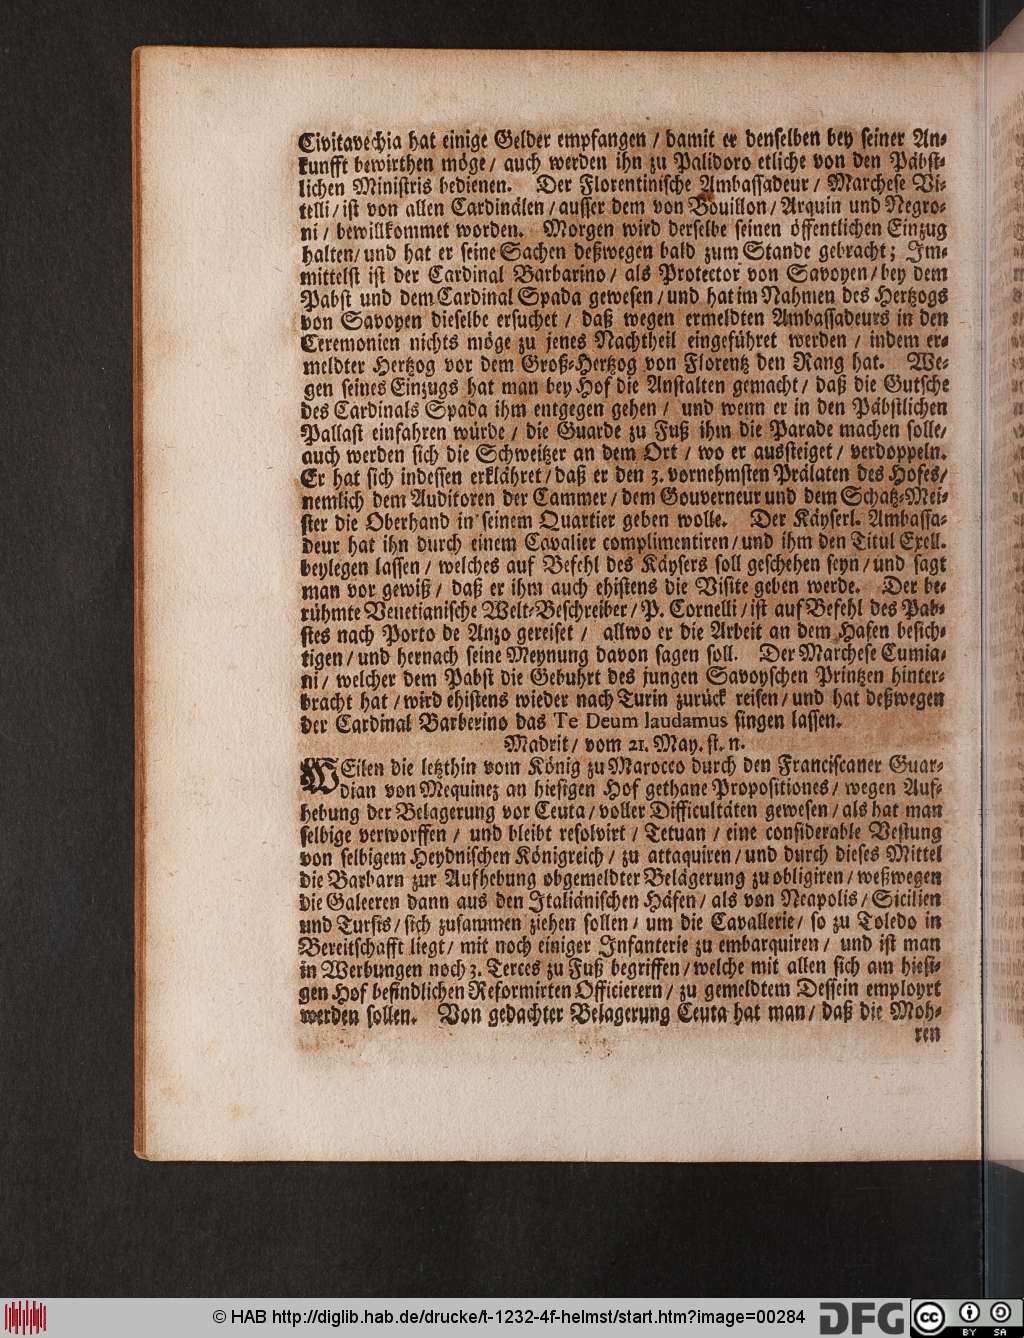 Civitavechia hat einige Gelder empfangen / damit er denselben bey seiner An-
kunfft bewirthen möge / auch werden ihn zu Palidoro etliche von den Päbst-
lichen Ministris bedienen. Der Florentinische Ambassadeur / Marchese Vi-
telli / ist von allen Cardinälen / ausser dem von Bouillon / Arquin und Negro-
ni / bewillkommet worden. Morgen wird derselbe seinen öffentlichen Einzug
halten / und hat er seine Sachen deßwegen bald zum Stande gebracht; Im-
mittelst ist der Cardinal Barbarino / als Protector von Savoyen / bey dem
Pabst und dem Cardinal Spada gewesen / und hat im Nahmen des Hertzogs
von Savoyen dieselbe ersuchet / daß wegen ermeldten Ambassadeurs in den
Ceremonien nichts möge zu jenes Nachtheil eingeführet werden / indem er-
meldter Hertzog vor dem Groß-Hertzog von Florentz den Rang hat. We-
gen seines Einzugs hat man bey Hof die Anstalten gemacht / daß die Gutsche
des Cardinals Spada ihm entgegen gehen / und wenn er in den Päbstlichen
Pallast einfahren würde / die Guarde zu Fuß ihm die Parade machen solle /
auch werden sich die Schweitzer an dem Ort / wo er aussteiget / verdoppeln.
Er hat sich indessen erklähret / daß er den 3. vornehmsten Prälaten des Hofes /
nemlich dem Auditoren der Cammer / dem Gouverneur und dem Schatz-Mei-
ster die Oberhand in seinem Quartier geben wolle. Der Käyserl. Ambassa-
deur hat ihn durch einem Cavalier complimentiren / und ihm den Titul Exell.
beylegen lassen / welches auf Befehl des Käysers soll geschehen seyn / und sagt
man vor gewiß / daß er ihm auch ehistens die Visite geben werde. Der be-
rühmte Venetianische Welt-Beschreiber / P. Cornelli / ist auf Befehl des Pab-
stes nach Porto de Anzo gereiset / allwo er die Arbeit an dem Hafen besich-
tigen / und hernach seine Meynung davon sagen soll. Der Marchese Cumia-
ni / welcher dem Pabst die Gebuhrt des jungen Savoyschen Printzen hinter-
bracht hat / wird ehistens wieder nach Turin zurück reisen / und hat deßwegen
der Cardinal Barberino das Te Deum laudamus singen lassen.
Madrit / vom 21. May. st. n.
WEilen die letzthin vom König zu Marocco durch den Franciscaner Guar-
dian von Mequinez an hiesigen Hof gethane Propositiones / wegen Auf-
hebung der Belagerung vor Ceuta / voller Difficultäten gewesen / als hat man
selbige verworffen / und bleibt resolvirt / Tetuan / eine considerable Vestung
von selbigem Heydnischen Königreich / zu attaquiren / und durch dieses Mittel
die Barbarn zur Aufhebung obgemeldter Belägerung zu obligiren / weßwegen
die Galeeren dann aus den Italiänischen Häfen / als von Neapolis / Sicilien
und Tursis / sich zusammen ziehen sollen / um die Cavallerie / so zu Toledo in
Bereitschafft liegt / mit noch einiger Infanterie zu embarquiren / und ist man
in Werbungen noch 3. Terces zu Fuß begriffen / welche mit allen sich am hiesi-
gen Hof befindlichen Reformirten Officierern / zu gemeldtem Dessein employrt
werden sollen. Von gedachter Belagerung Ceuta hat man / daß die Moh-
ren
© HAB http://diglib.hab.de/drucke/t-1232-4f-helmst/start.htm?image=00284
DFG
cc BY SA